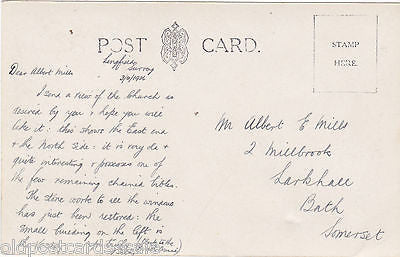 POST CARD.
STAMP
HERE.
Lingfield
Surrey
Dear Albert Mills
I send a view of the Church as
desired by you & hope you will
like it: this shows the East end
& the North side: it is very old &
quite interesting & possesses one of
the few remaining chained bibles.
The stone work to see the windows
has just been restored: the
small building on the left is
Mr Albert E Mills
2 Millbrook
Larkhall
Bath
Somerset
oldpostcardsales